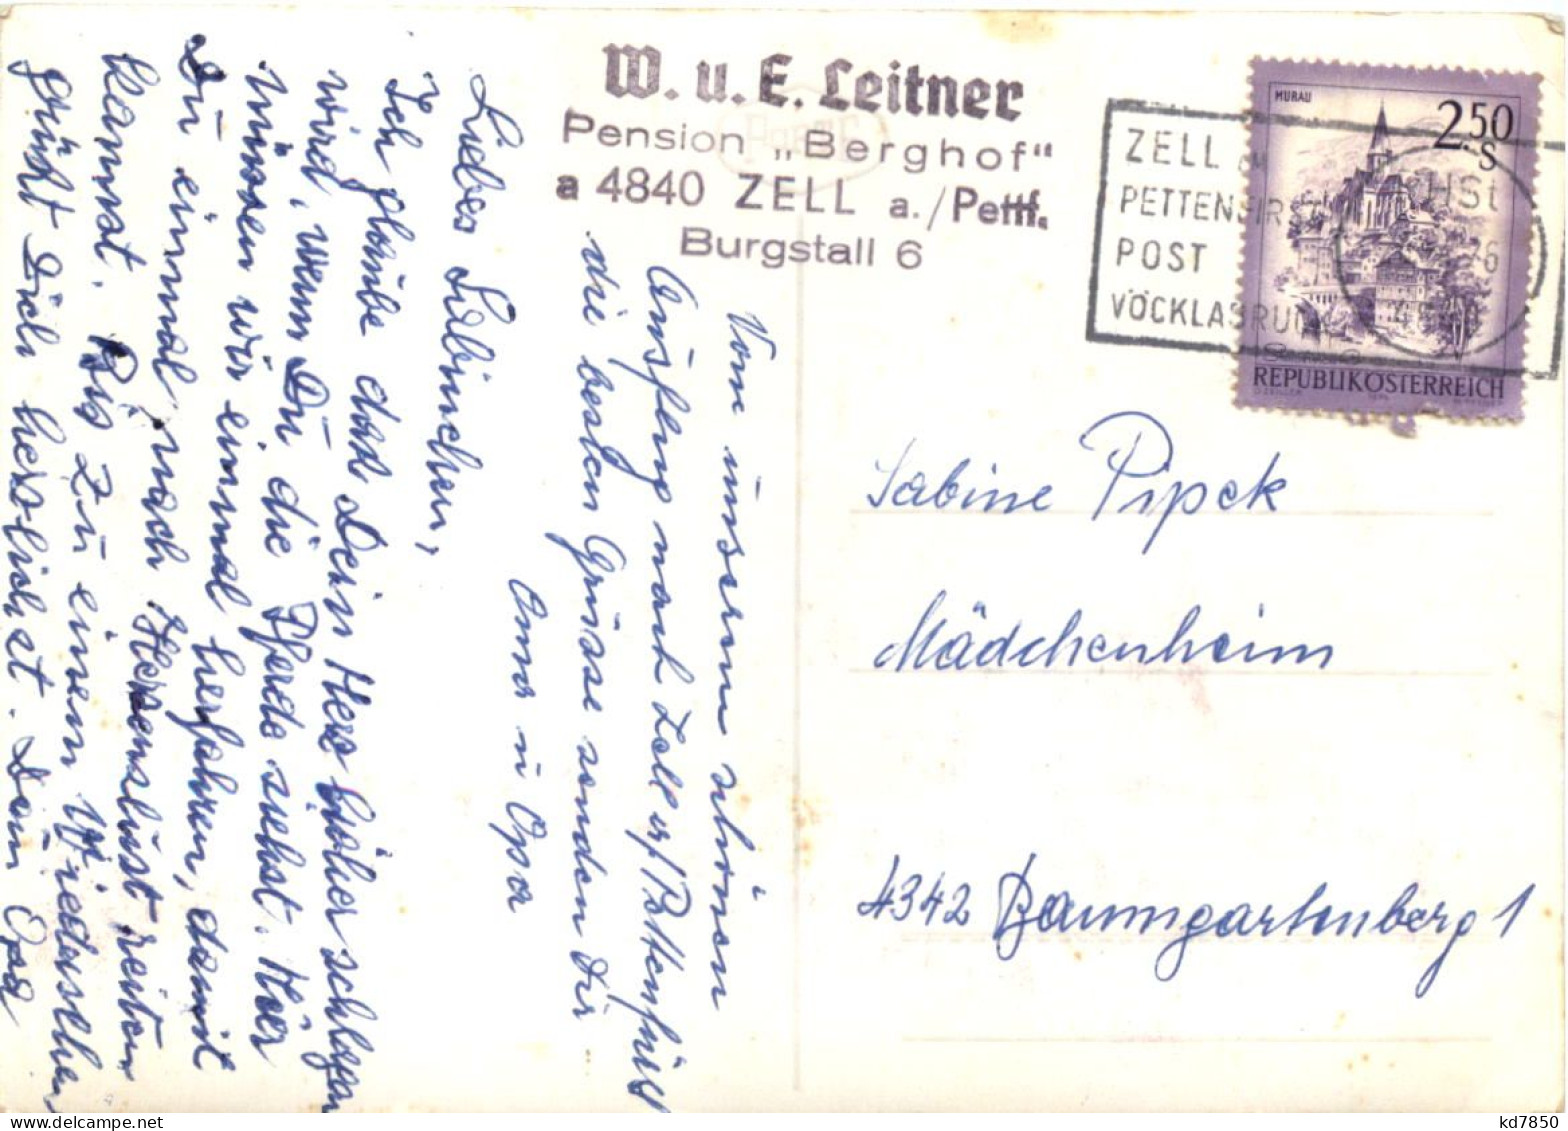 W. u. E. Leitner
Pension „Berghof“
a 4840 ZELL a./Pettf.
Burgstall 6
MURAU
2.50
S
REPUBLIK ÖSTERREICH
ZELL
PETTENFIRST
POST
VÖCKLABRUCK
76
Vom unserem schönen
Ausflug nach Zell a/Pettenfirst
die besten Grüsse senden Dir
Oma u Opa
Liebes Sabinchen,
Ich glaube dass Dein Herz höher schlagen
wird, wenn Du die Pferde siehst. Hier
müssen wir einmal herfahren, damit
Du einmal nach Herzenslust reiten
kannst. Bis zu einem Wiedersehen
grüßt Dich herzlichst. Dein Opa
Sabine Pipek
Mädchenheim
4342 Baumgartenberg 1
kd7850